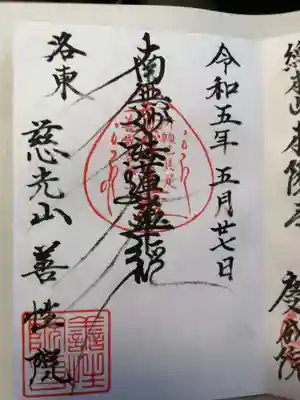 総本山本隆寺 慶成院
令和五年 五月廿七日
南無妙法蓮華経
洛東 慈光山 善性院